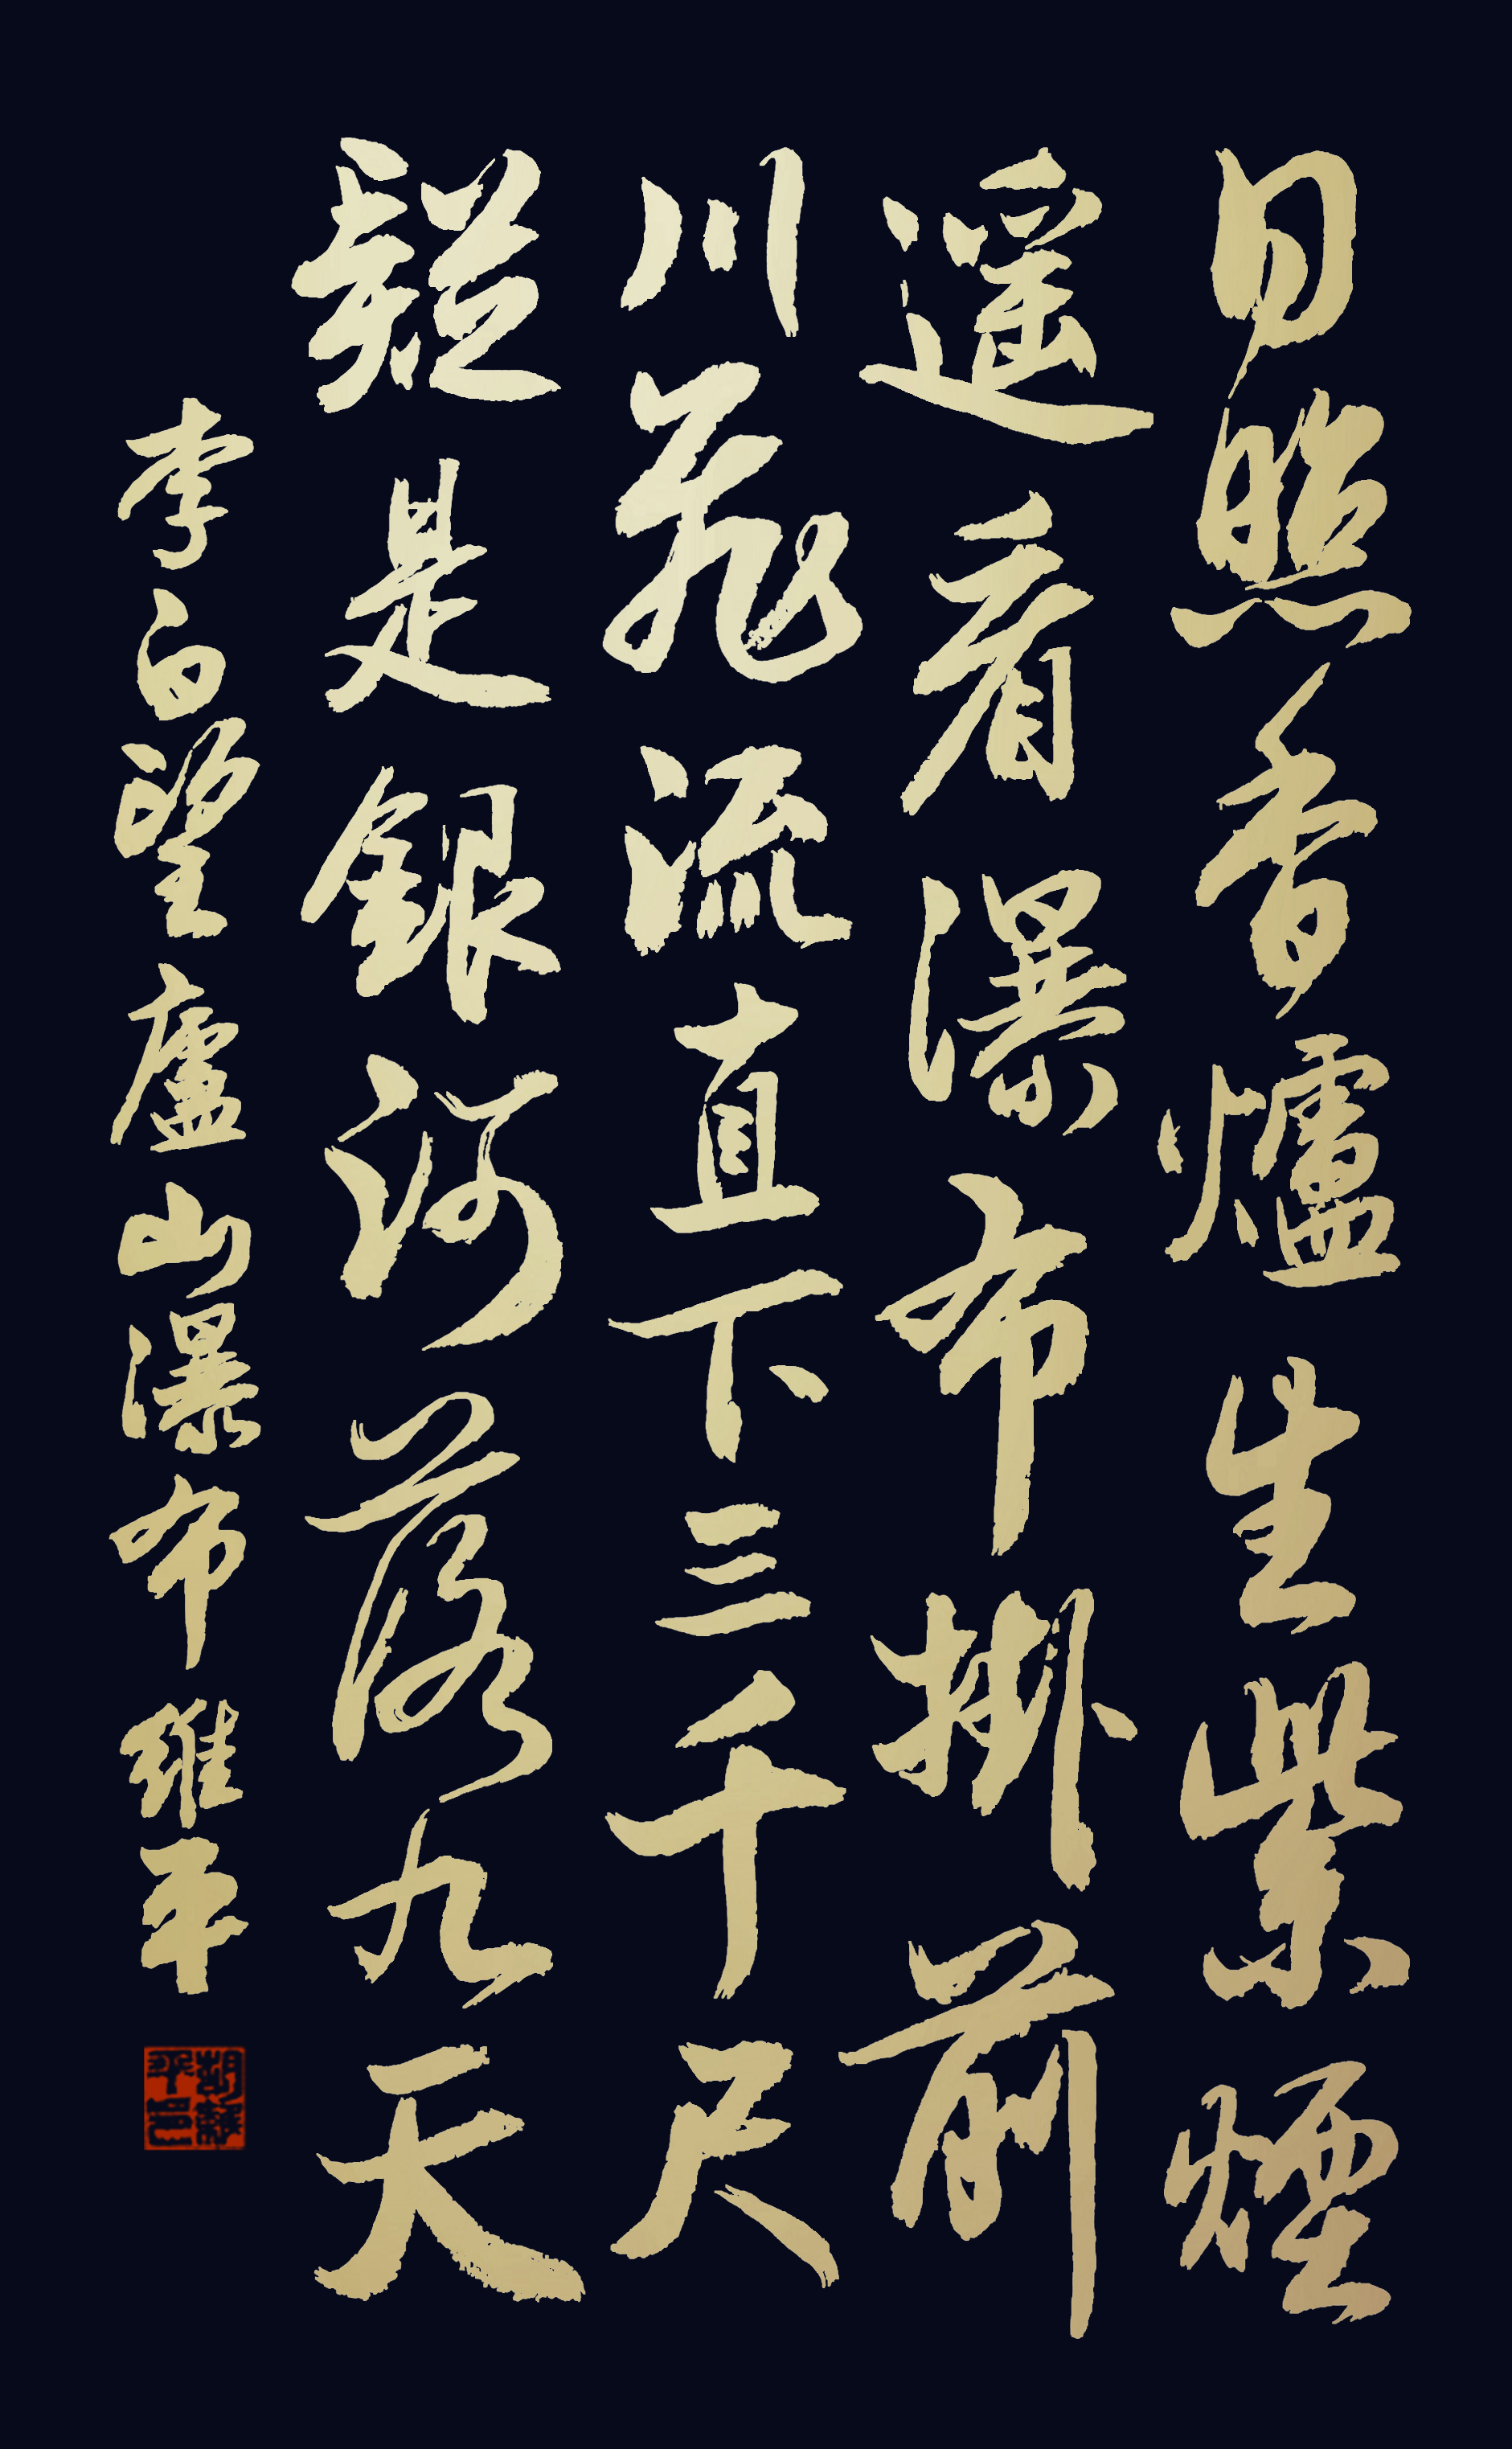 日照香爐生紫煙
遥看瀑布掛前
川飛流直下三千尺
疑是銀河落九天
李白望廬山瀑布 維平